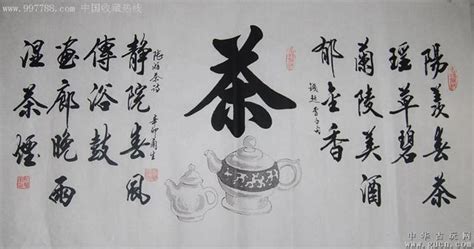 www.997788.com 中国收藏热线
陽羨春茶
瑶草碧
蘭陵美酒
郁金香
茶
陸游茶诗
静院春風
傳浴鼓
畫廊晚雨
湿茶煙
辛卯
中华古玩网
www.gucn.com